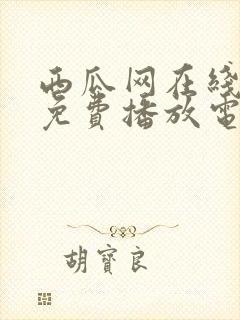 西瓜网在线
免费播放电
胡寶良